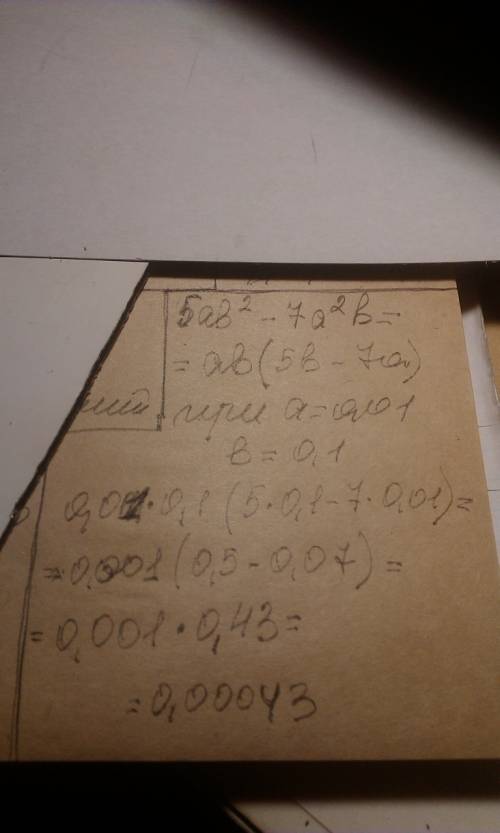 5ab² - 7a²b =
= ab(5b - 7a)
при a = 0,01
b = 0,1
0,01·0,1(5·0,1-7·0,01)=
= 0,001(0,5-0,07)=
= 0,001·0,43=
= 0,00043